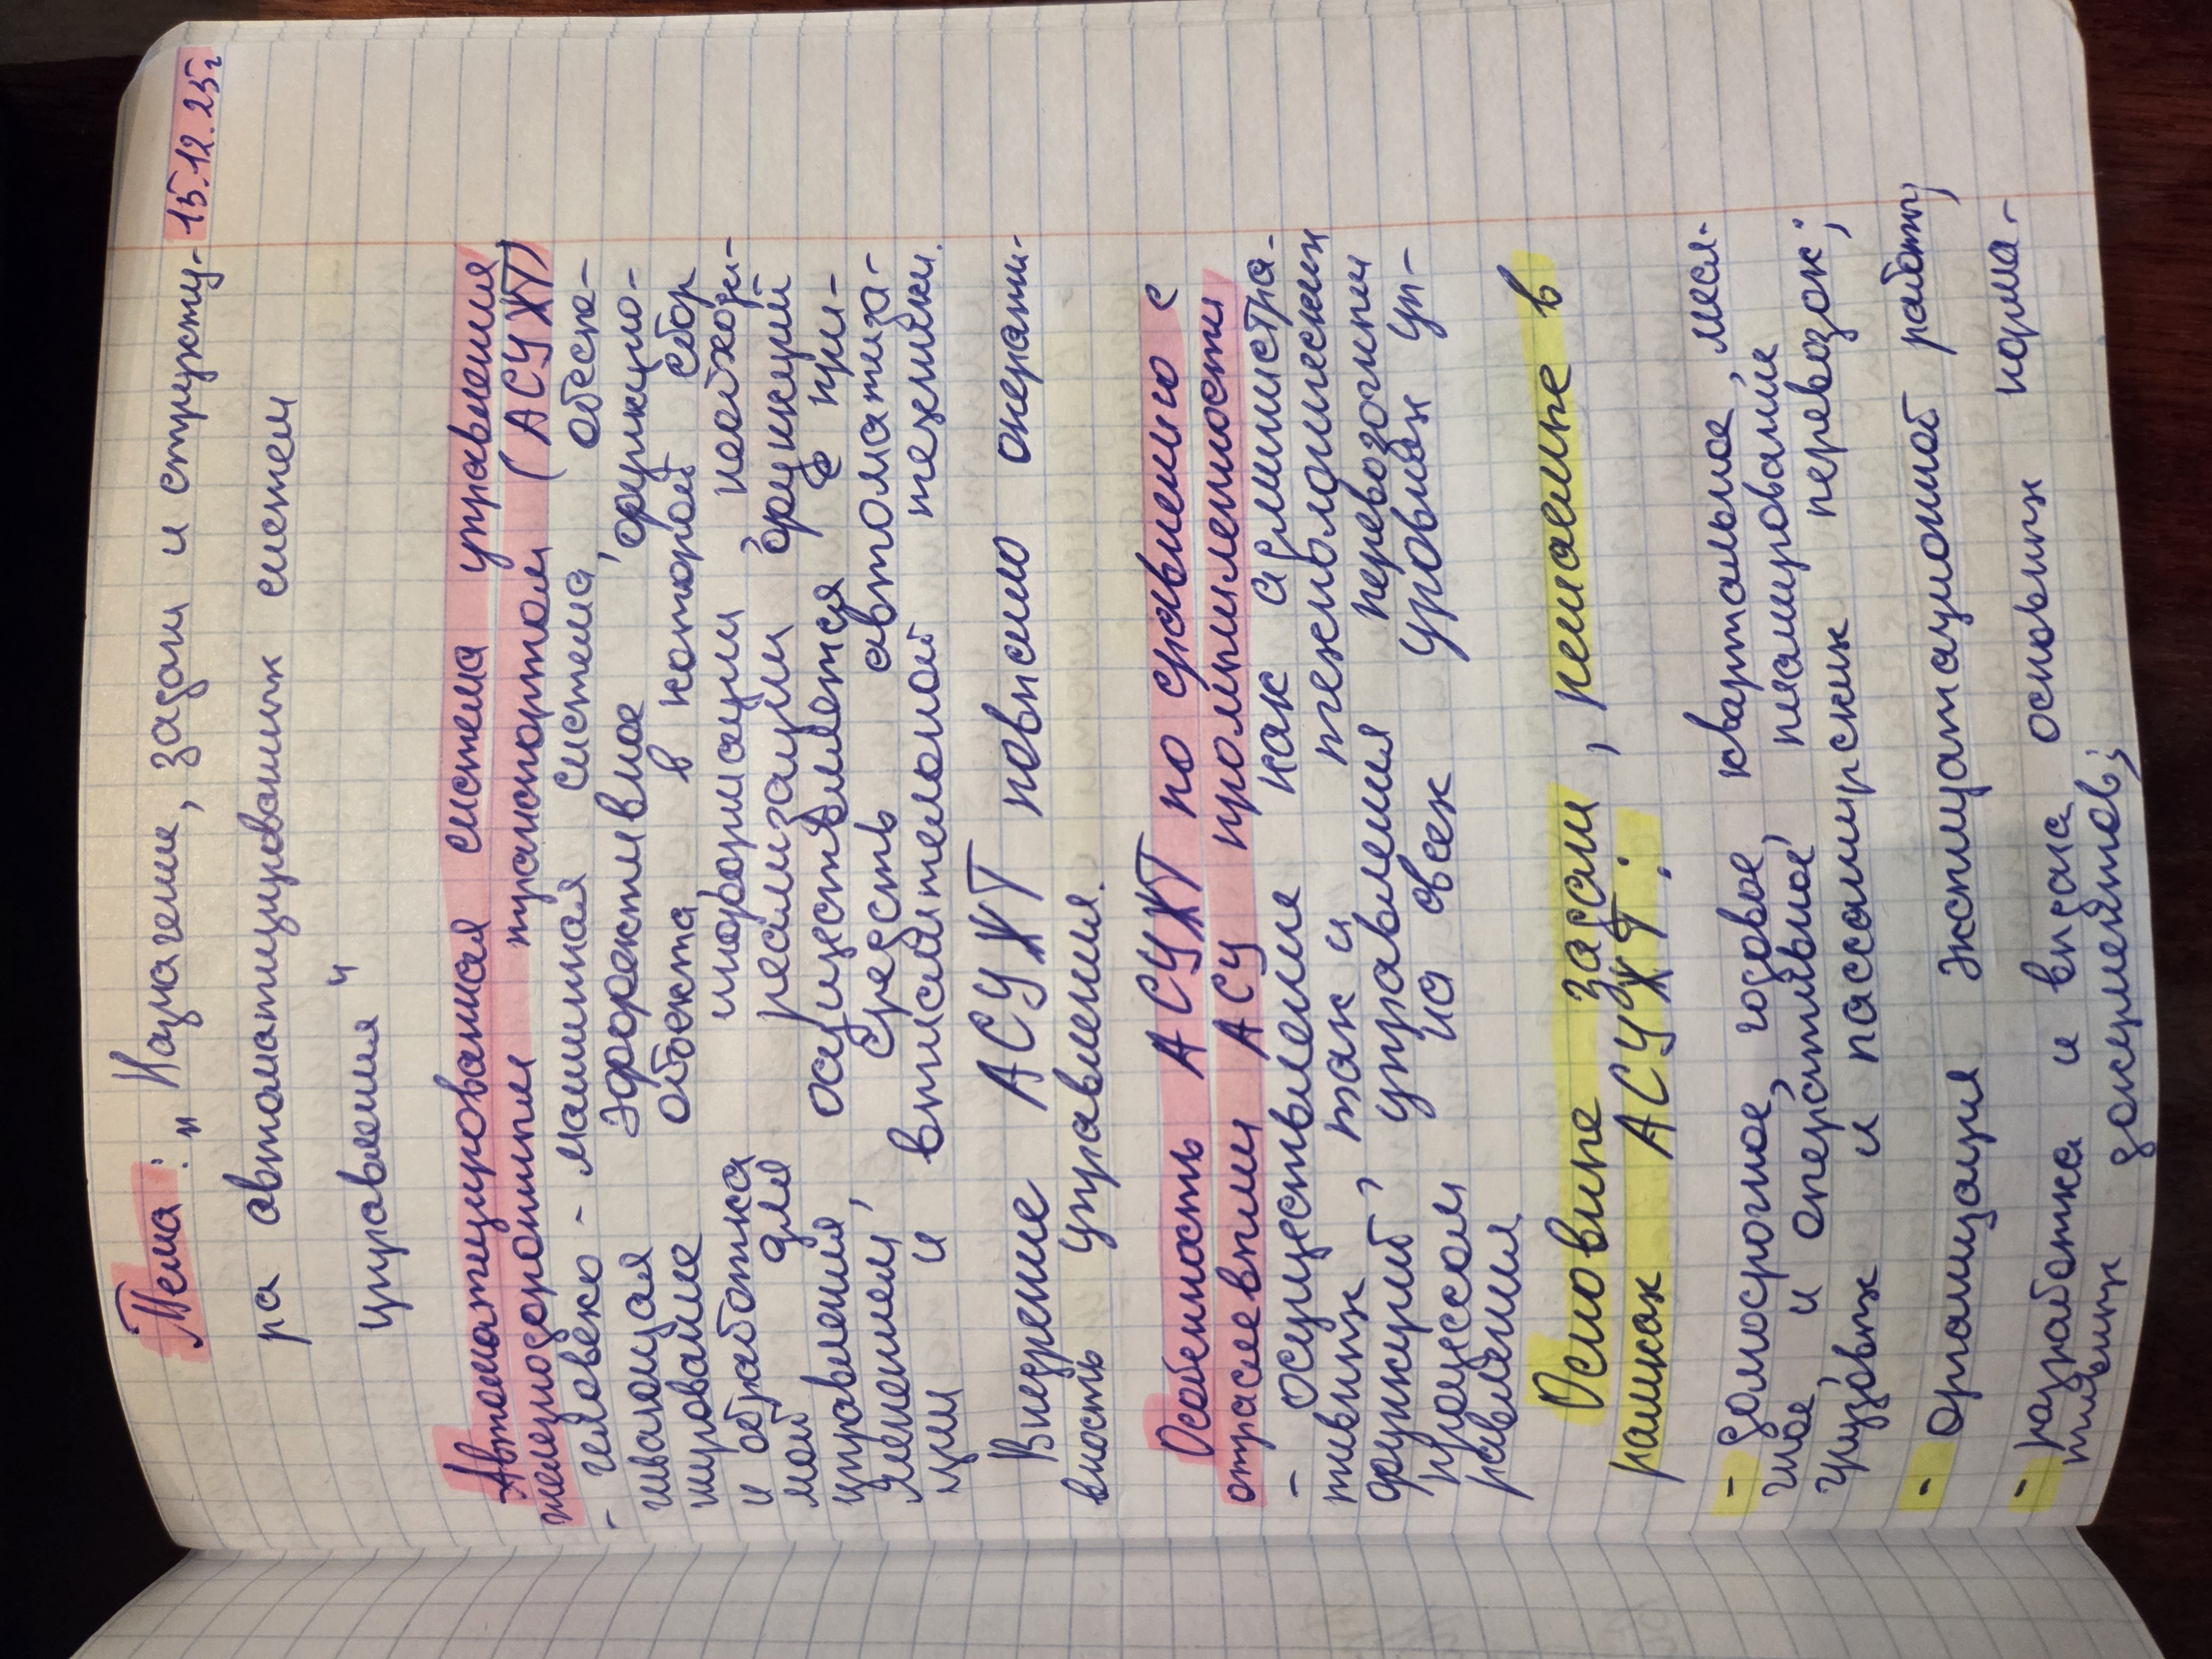 Тема: „Назначение, задачи и структу- 15.12.25г
ра автоматизированных систем
управления"
Автоматизированная система управления
железнодорожным транспортом (АСУЖТ)
- человеко-машинная система, обеспе-
чивающая эффективное функцио-
нирование объекта, в которой сбор
и обработка информации, необходи-
мой для реализации функций
управления, осуществляется с при-
менением средств автоматиза-
ции и вычислительной техники.
Внедрение АСУЖТ повысило операти-
вность управления.
Особенность АСУЖТ по сравнению с
отраслевыми АСУ промышленности
- осуществление как администра-
тивных, так и технологических
функций управления перевозочным
процессом управления на всех уровнях уп-
равления
Основные задачи, решаемые в
рамках АСУЖТ:
- долгосрочное, годовое, квартальное, меся-
чное и оперативное планирование
грузовых и пассажирских перевозок;
- организация эксплуатационной работы,
- разработка и выдача основных норма-
тивных документов;